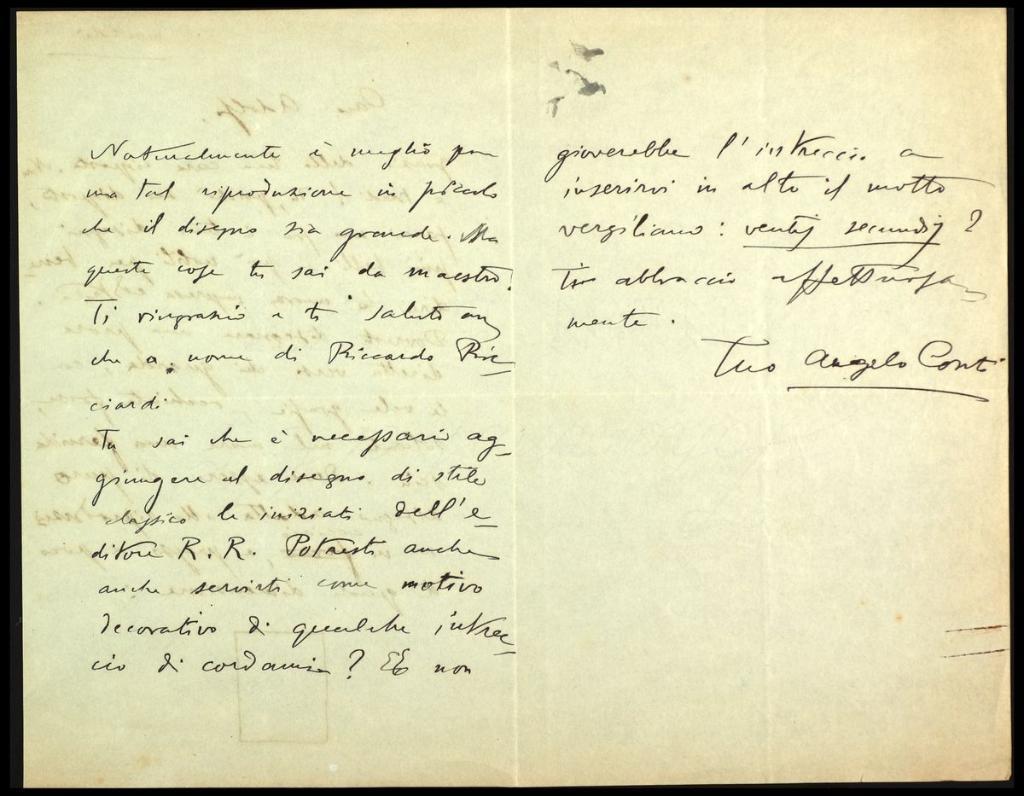 Naturalmente è meglio per
una tal riproduzione in piccolo
che il disegno sia grande. Ma
queste cose tu sai da maestro.
Ti ringrazio e ti saluto an
che a nome di Riccardo Ric-
ciardi
Tu sai che è necessario ag-
giungere al disegno di stile
classico le iniziali dell'e-
ditore R. R. Potresti anche
anche servirti come motivo
decorativo di qualche intrec-
cio di cordami ? E non
gioverebbe l'intreccio a
inserirvi in alto il motto
vergiliano : ventis secundis ?
Ti abbraccio affettuosa-
mente .
Tuo Angelo Conti